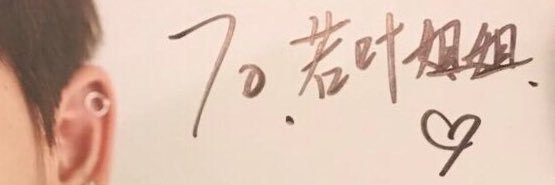 To.若叶姐姐.